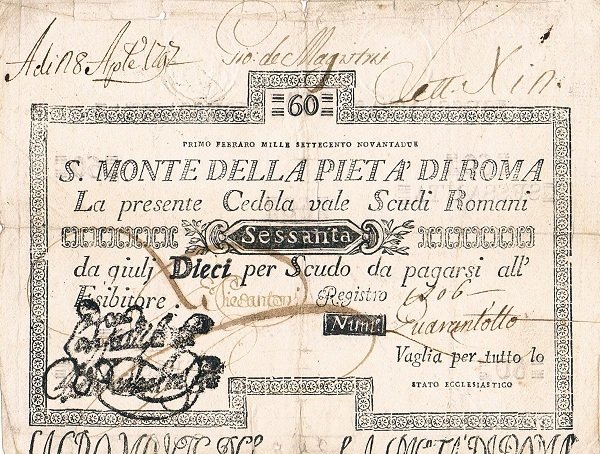 Adi 18 Aple 1797 Gio: de Magistris
60
PRIMO FEBRARO MILLE SETTECENTO NOVANTADUE
S. MONTE DELLA PIETA' DI ROMA
La presente Cedola vale Scudi Romani
Sessanta
da giulj Dieci per Scudo da pagarsi all'
Esibitore. Registro 1206
Num. Quarantotto
Vaglia per tutto lo
STATO ECCLESIASTICO